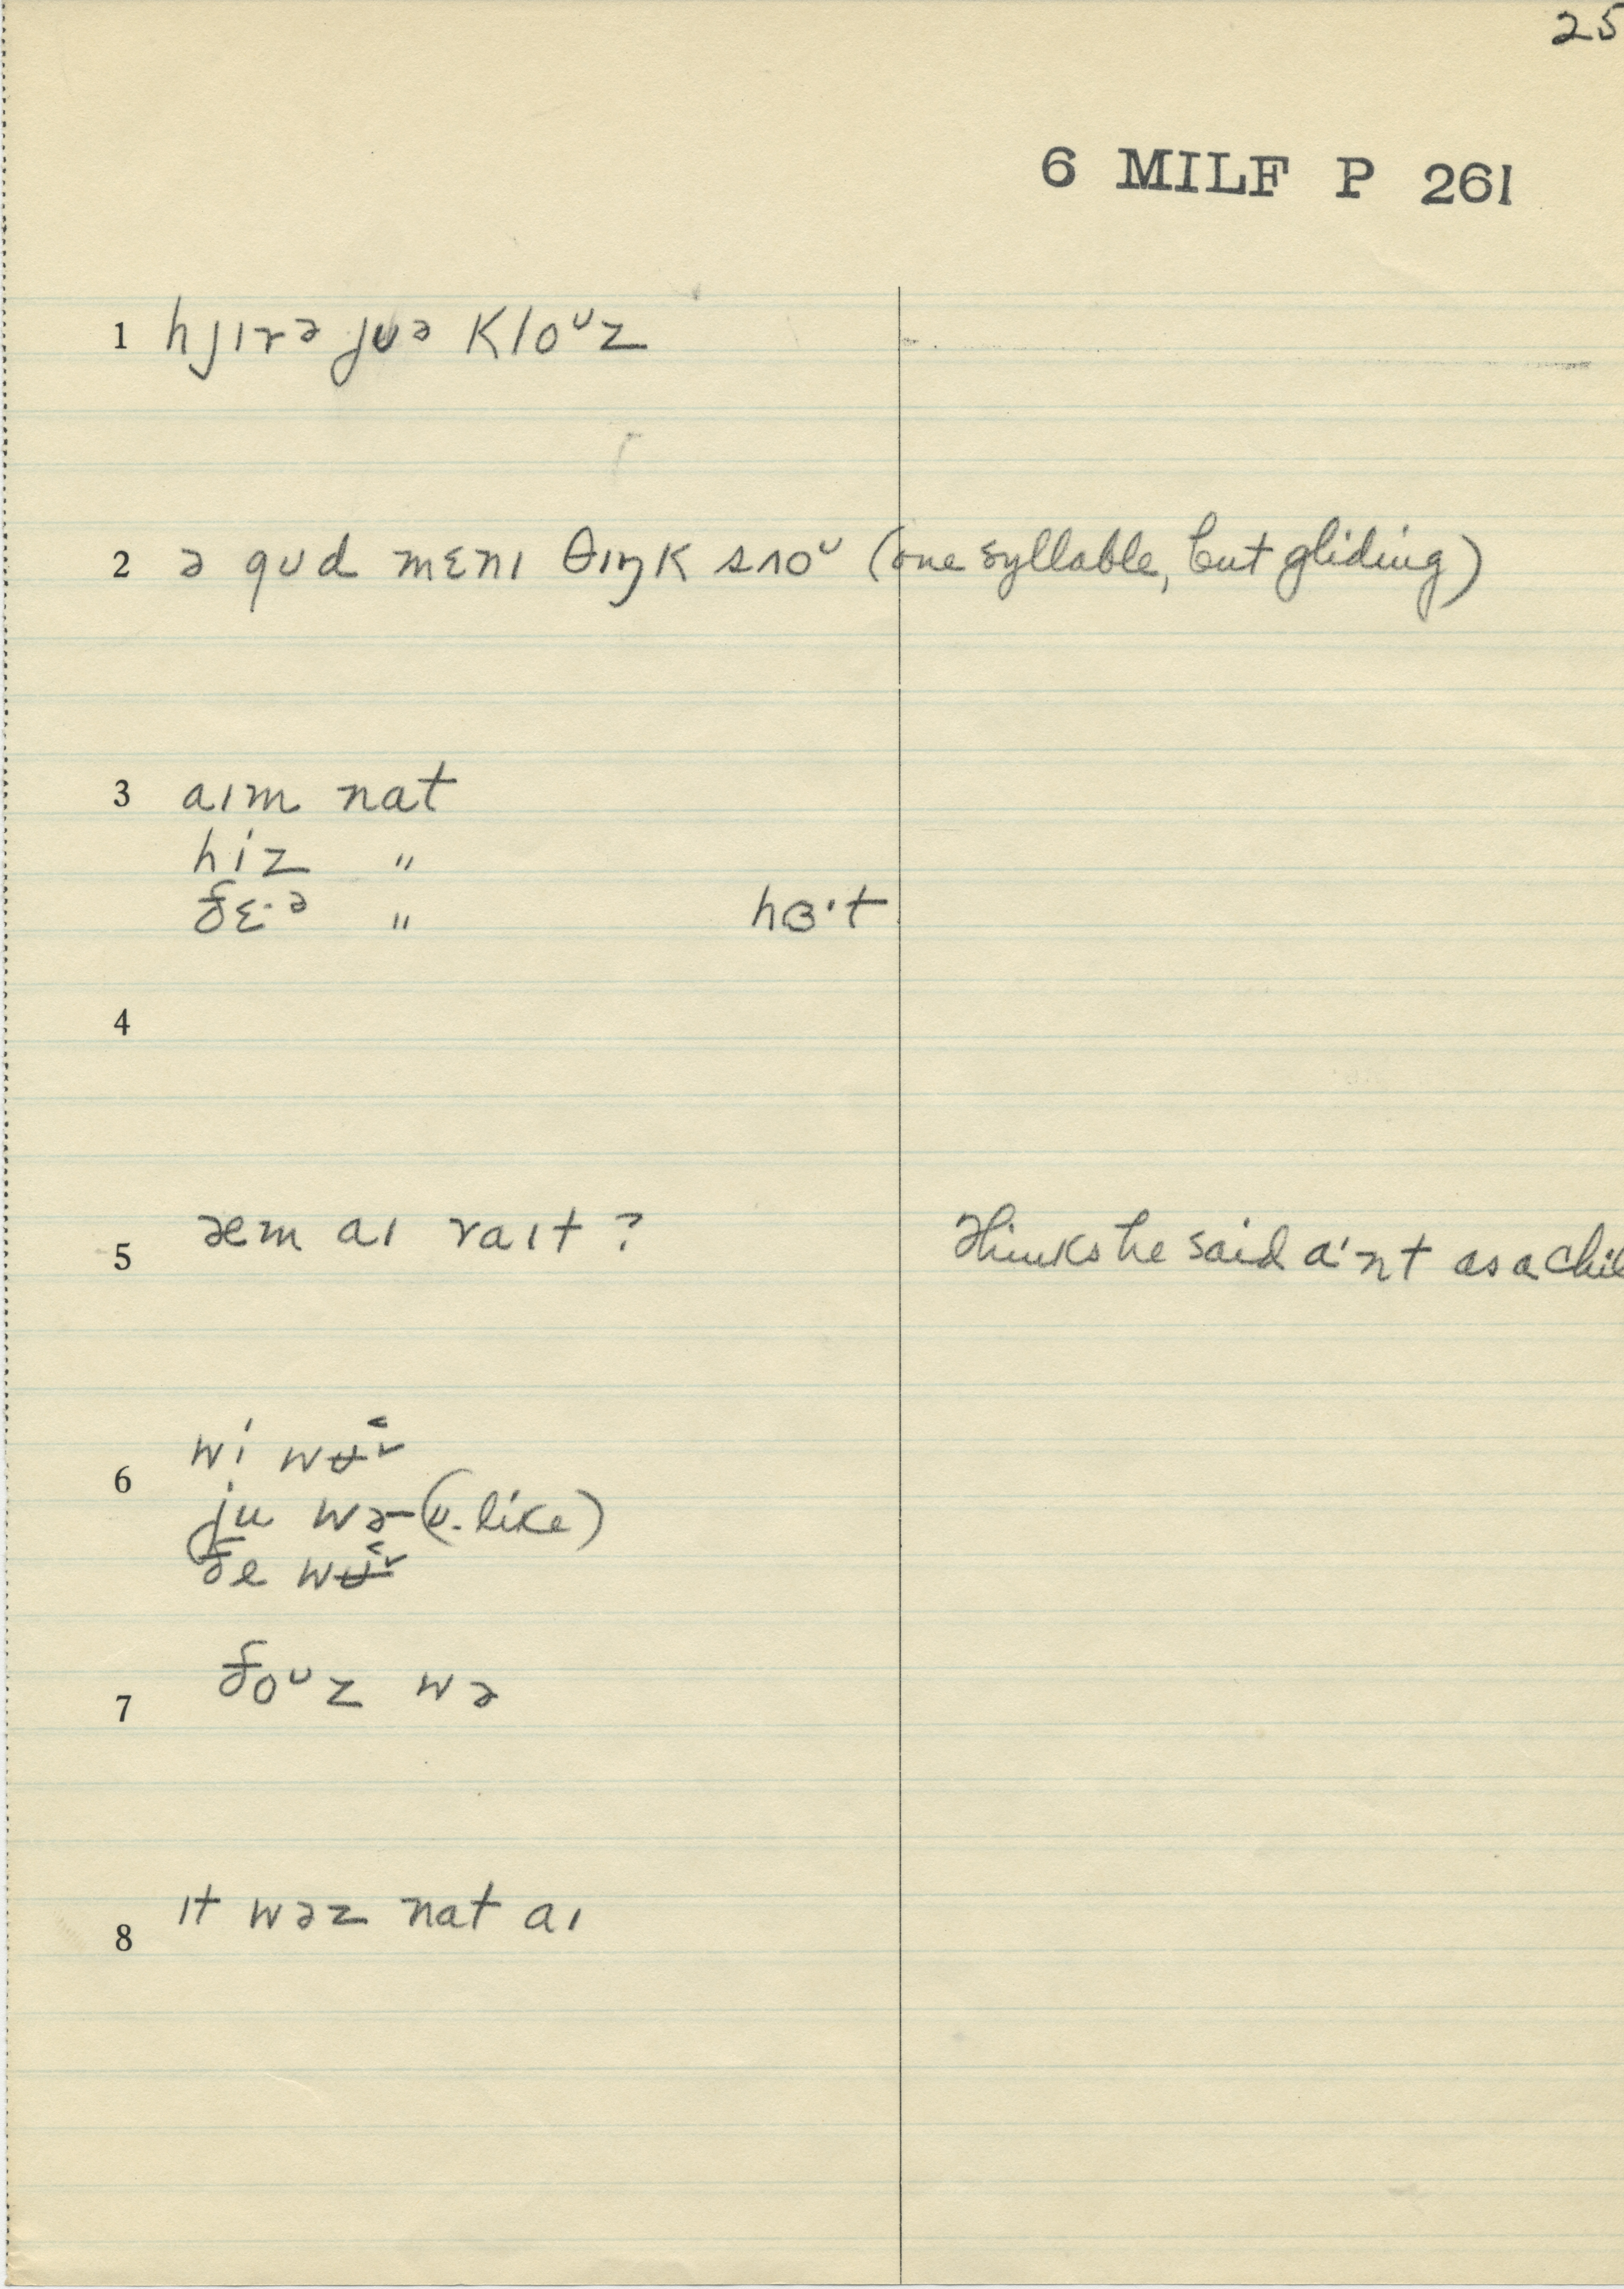 25
6 MILF P 261
1 hjɪrə jʊə kloᶷz
2 ə gʊd mɛnɪ θɪŋk sʌoᶷ (one syllable, but gliding)
3 aɪm nat
hiz "
ðɛ·ᵊ " hɞ·t
4
5 æm aɪ raɪt ? Thinks he said a'nt as a chil
6 wi
ju wə (ʊ-like)
ðe
7 ðoᶷz wə
8 ɪt wəz nat aɪ